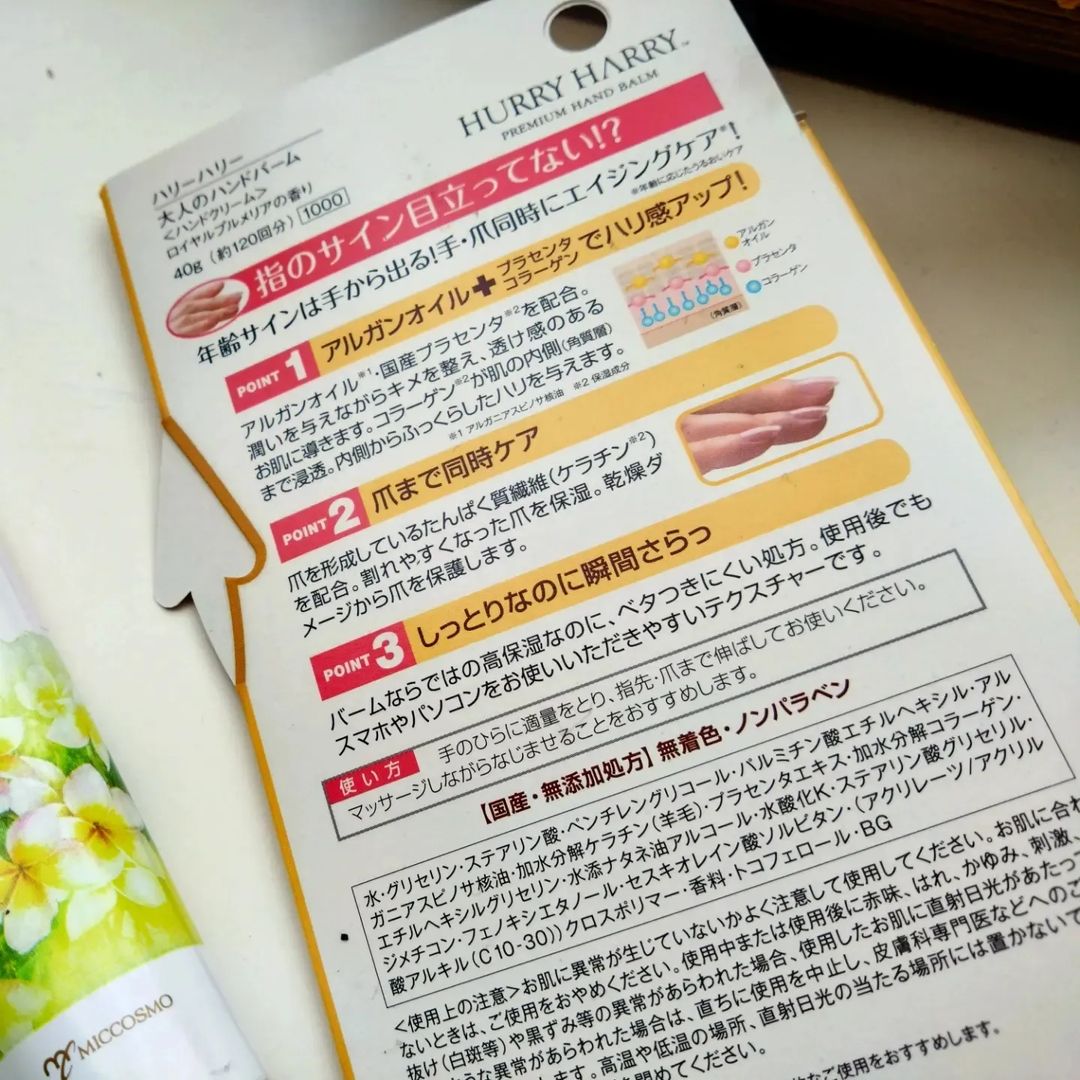 HURRY HARRY™
PREMIUM HAND BALM
ハリーハリー
大人のハンドバーム
<ハンドクリーム>
ロイヤルプルメリアの香り
40g(約120回分) 1000
指のサイン目立ってない!?
年齢サインは手から出る!手・爪同時にエイジングケア※!
※年齢に応じたうるおいケア
POINT 1 アルガンオイル+プラセンタ コラーゲンでハリ感アップ!
アルガンオイル※1、国産プラセンタ※2を配合。
潤いを与えながらキメを整え、透け感のある
お肌に導きます。コラーゲン※2が肌の内側(角質層)
まで浸透。内側からふっくらしたハリを与えます。
※1 アルガニアスピノサ核油 ※2 保湿成分
アルガンオイル
プラセンタ
コラーゲン
(角質層)
POINT 2 爪まで同時ケア
爪を形成しているたんぱく質繊維(ケラチン※2)
を配合。割れやすくなった爪を保湿。乾燥ダ
メージから爪を保護します。
POINT 3 しっとりなのに瞬間さらっ
バームならではの高保湿なのに、ベタつきにくい処方。使用後でも
スマホやパソコンをお使いいただきやすいテクスチャーです。
使い方 手のひらに適量をとり、指先・爪まで伸ばしてお使いください。
マッサージしながらなじませることをおすすめします。
【国産・無添加処方】無着色・ノンパラベン
水・グリセリン・ステアリン酸・ペンチレングリコール・パルミチン酸エチルヘキシル・アル
ガニアスピノサ核油・加水分解ケラチン(羊毛)・プラセンタエキス・加水分解コラーゲン・
エチルヘキシルグリセリン・水添ナタネ油アルコール・水酸化K・ステアリン酸グリセリル・
ジメチコン・フェノキシエタノール・セスキオレイン酸ソルビタン・(アクリレーツ/アクリル
酸アルキル(C10-30))クロスポリマー・香料・トコフェロール・BG
<使用上の注意>お肌に異常が生じていないかよく注意して使用してください。お肌に合わ
ないときは、ご使用をおやめください。使用中または使用後に赤味、はれ、かゆみ、刺激、
抜け(白斑等)や黒ずみ等の異常があらわれた場合、使用したお肌に直射日光があたって
ような異常があらわれた場合は、直ちに使用を中止し、皮膚科専門医などへのご
します。高温や低温の場所、直射日光の当たる場所には置かないで
を閉めてください。
なご使用をおすすめします。
MICCOSMO